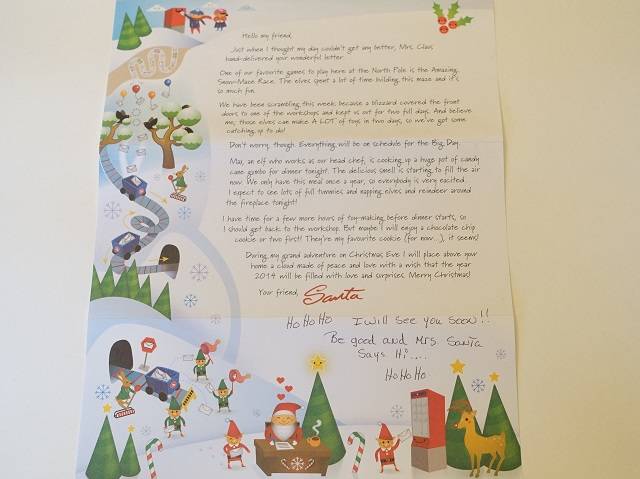 Hello my friend,
Just when I thought my day couldn't get any better, Mrs. Claus
hand-delivered your wonderful letter.
One of our favourite games to play here at the North Pole is the Amazing
Snow-Maze Race. The elves spent a lot of time building this maze and it's
so much fun.
We have been scrambling this week because a blizzard covered the front
doors to one of the workshops and kept us out for two full days. And believe
me, those elves can make A LOT of toys in two days, so we've got some
catching up to do!
Don't worry, though. Everything will be on schedule for the Big Day.
May, an elf who works as our head chef, is cooking up a huge pot of candy
cane gumbo for dinner tonight. The delicious smell is starting to fill the air
now. We only have this meal once a year, so everybody is very excited.
I expect to see lots of full tummies and napping elves and reindeer around
the fireplace tonight!
I have time for a few more hours of toy-making before dinner starts, so
I should get back to the workshop. But maybe I will enjoy a chocolate chip
cookie or two first! They're my favourite cookie (for now...), it seems!
During my grand adventure on Christmas Eve I will place above your
home a cloud made of peace and love with a wish that the year
2014 will be filled with love and surprises. Merry Christmas!
Your friend, Santa
Ho Ho Ho I will see you soon!!
Be good and Mrs. Santa
Says Hi....
Ho Ho Ho